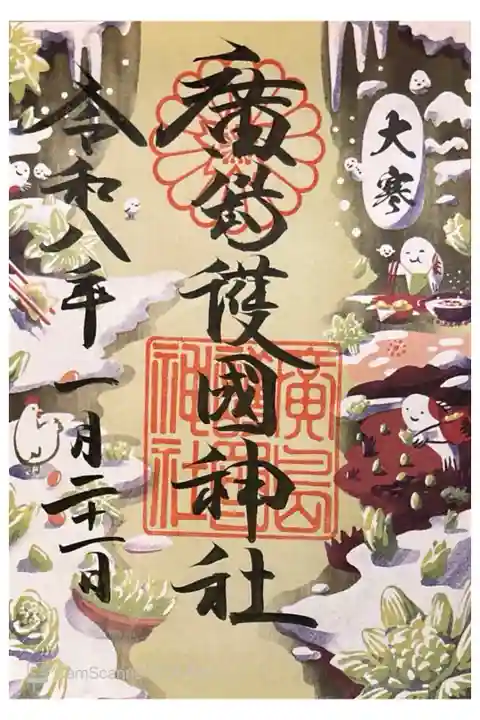 大寒
廣島護國神社
廣島
護國
神社
令和八年一月二十一日
CamScanner